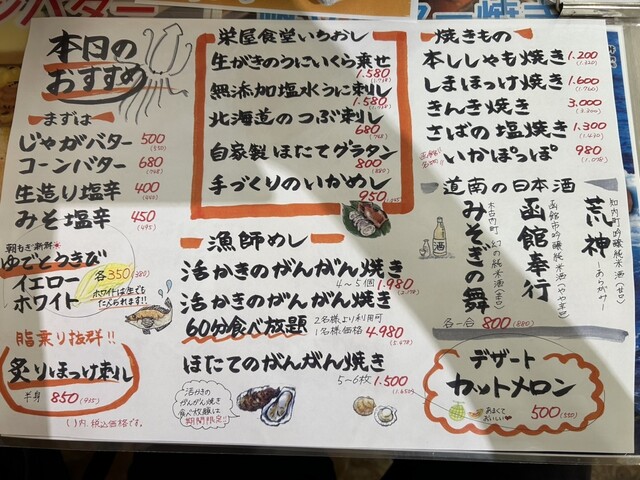 本日の
おすすめ
まずは
じゃがバター 500
(550)
コーンバター 680
(748)
生造り塩辛 400
みそ塩辛 450
(495)
朝もぎ新鮮
ゆでとうきび
イエロー
ホワイト
各350(380)
ホワイトは生でも
たべられます!!
脂乗り抜群!!
炙りほっけ刺し
半身 850(935)
( )内、税込価格です。
栄屋食堂いちおし
生がきのうにいくら乗せ
1.580
(1.738)
無添加塩水うに刺し
1.580
北海道のつぶ刺し
680
(748)
自家製ほたてグラタン
800
(880)
手づくりのいかめし
950
漁師めし
活かきのがんがん焼き
4～5個 1.980
活かきのがんがん焼き
60分食べ放題
2名様より利用可
1名様価格 4.980
(5.478)
ほたてのがんがん焼き
5～6枚 1.500
(1.650)
活かきの
がんがん焼き
食べ放題は
期間限定
焼きもの
本ししゃも焼き 1.200
(1.320)
しまほっけ焼き 1.600
(1.760)
きんき焼き 3.000
(3.300)
さばの塩焼き 1.300
(1.430)
函館名物!! いかぽっぽ 980
(1.078)
道南の日本酒
荒神
あらがみ
知内町 吟醸純米酒(甘口)
函館奉行
函館市 吟醸純米酒(やや辛口)
みそぎの舞
木古内町 幻の純米酒(辛口)
酒
各一合 800(880)
デザート
カットメロン
あまくて
おいしい
500(550)